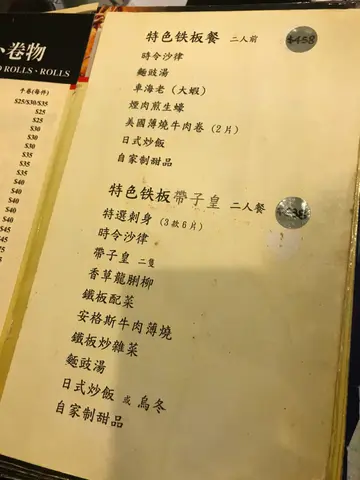 卷物
ROLLS · ROLLS
手卷(每件)
$25/$30/$35
$25
$25
$30
$30
$30
$35
$35
$35
$40
$40
$40
$40
$45
$45
$75
特色铁板餐 二人前 $458
時令沙律
麵豉湯
車海老 (大蝦)
煙肉煎生蠔
美國薄燒牛肉卷 (2片)
日式炒飯
自家制甜品
特色铁板帶子皇 二人餐
特選刺身 (3款6片)
時令沙律
帶子皇 二隻
香草龍脷柳
鐵板配菜
安格斯牛肉薄燒
鐵板炒雜菜
麵豉湯
日式炒飯 或 烏冬
自家制甜品